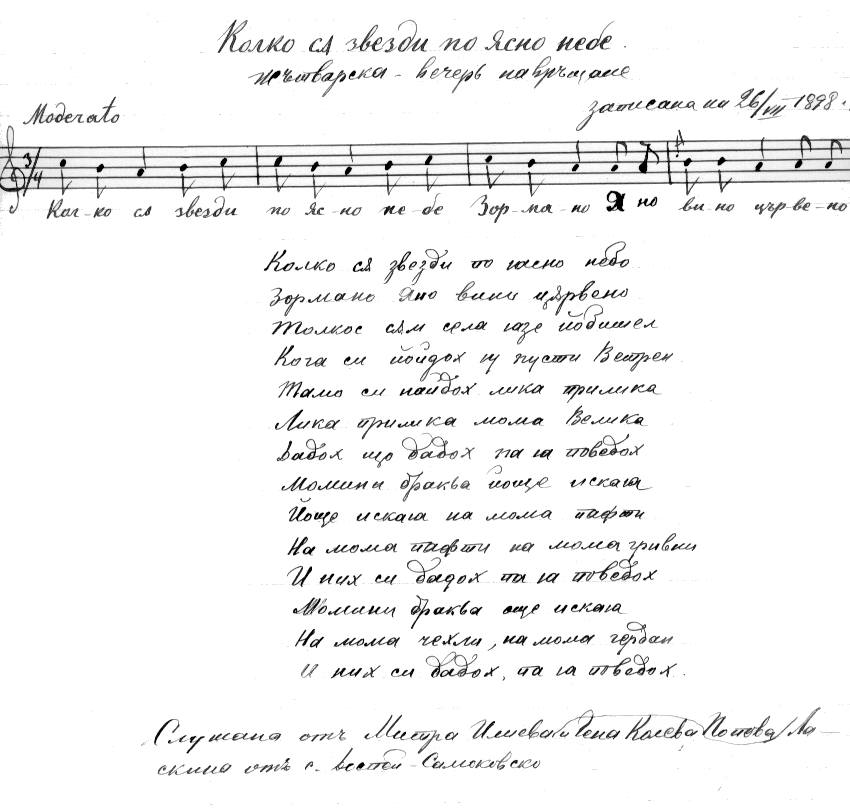 Колко сѫ звезди по Ясно небе.
Жътварска - вечерь навръщане
записана на 26/VII 1898 г.
Moderato
3/4
Кол-ко сѫ звезди по яс-но не-бе Зор-ма-но Я но ви-но цър-ве-но
Колко сѫ звезди по ясно небо
Зормано Яно вини цярвено
Толкос сям села язе йобишел
Кога си пойдох у пусти Ветрен
Тамо си найдох лика прилика
Лика прилика мома Велика
Дадох що дадох па ia поведох
Момини браква йоще искаia
Йоще искаia на мома пафти
На мома пафти на мома гривни
И них си дадох па ia поведох
Момини браква още искаia
На мома чехли, на мома гердан
И них си дадох, па ia поведох.
Слушана отъ Митра Илиева и Гена Колева Попова /Ла-
скина отъ с. Самоковско